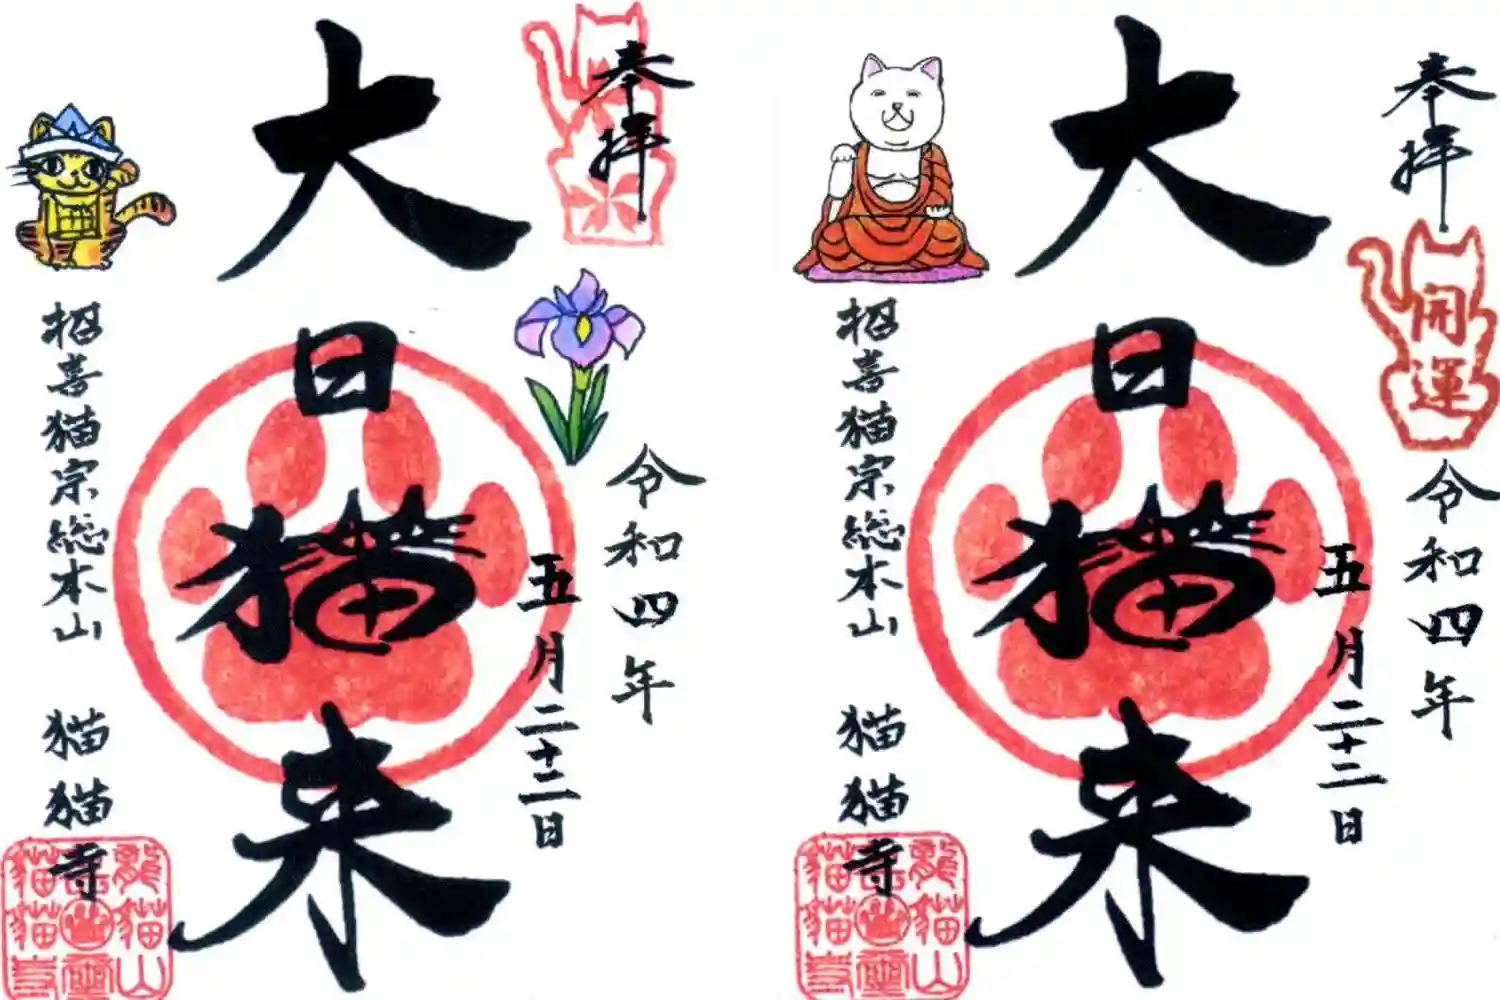 奉拝
令和四年
五月二十二日
大日猫来
招喜猫宗総本山 猫猫寺
奉拝
開運
令和四年
五月二十二日
大日猫来
招喜猫宗総本山 猫猫寺